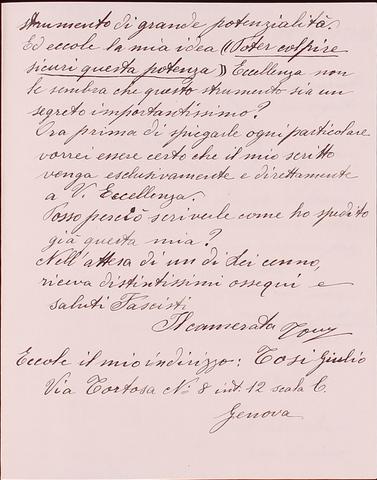 strumento di grande potenzialità.
Ed eccole la mia idea (Poter colpire
sicuri questa potenza)) Eccellenza non
le sembra che questo strumento sia un
segreto importantissimo?
Ora prima di spiegarle ogni particolare
vorrei essere certo che il mio scritto
venga esclusivamente e direttamente
a V. Eccellenza.
Posso perciò scriverle come ho spedito
già questa mia?
Nell'attesa di un di Lei cenno,
riceva distintissimi ossequi e
saluti Fascisti
Il camerata
Eccole il mio indirizzo: Tosi Giulio
Via Tortosa No 8 int. 12 scala C.
Genova